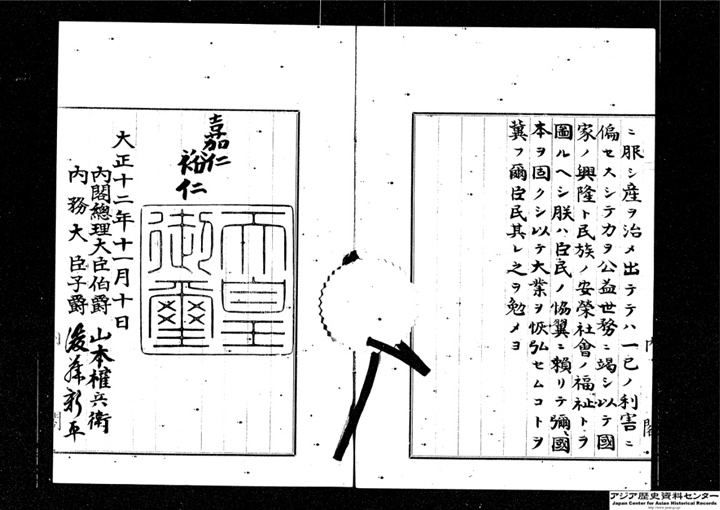 ニ服シ産ヲ治メ出テテハ一己ノ利害ニ
偏セスシテカヲ公益世務ニ竭シ以テ國
家ノ興隆ト民族ノ安榮社會ノ福祉トヲ
圖ルヘシ朕ハ臣民ノ協翼ニ頼リテ彌國
本ヲ固クシ以テ大業ヲ恢弘セムコトヲ
冀フ爾臣民其レ之ヲ勉メヨ
嘉仁
裕仁
天皇
御璽
大正十二年十一月十日
内閣總理大臣伯爵 山本權兵衛
内務大臣子爵 後藤新平
内閣
アジア歴史資料センター
Japan Center for Asian Historical Records
http://www.jacar.go.jp/